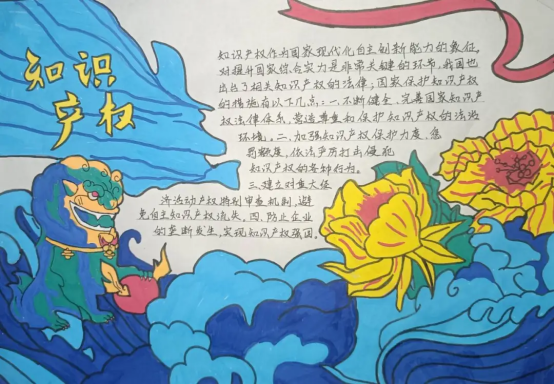 知识
产权
知识产权作为国家现代化自主创新能力的象征。
对提升国家综合实力是非常关键的环节,我国也
出台了相关知识产权的法律;国家保护知识产权
的措施有以下几点:一.不断健全、完善国家知识产
权法律体系,营造尊重和保护知识产权的法治
环境。二.加强知识产权保护力度,
额度,依法严厉打击侵犯
知识产权的各种行为。
三.建立对重大经
济活动产权特别审查机制,避
免自主知识产权流失。四.防止企业
的垄断发生,实现知识产权强国。